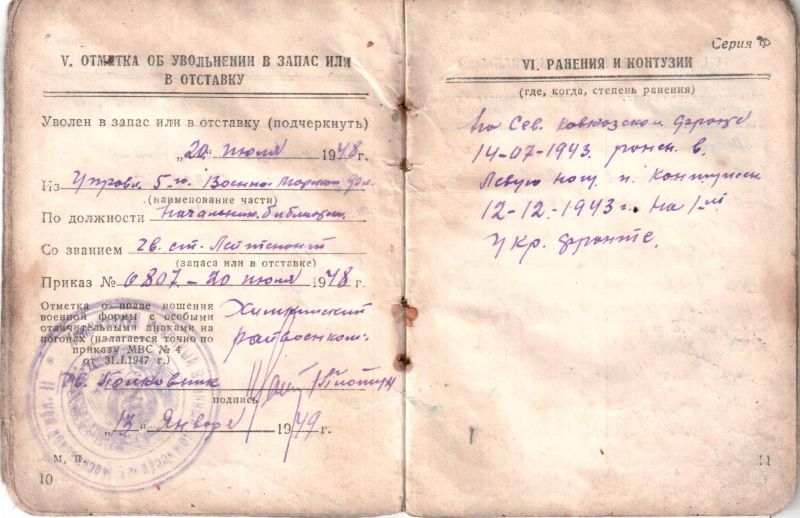 V. ОТМЕТКА ОБ УВОЛЬНЕНИИ В ЗАПАС ИЛИ
В ОТСТАВКУ
Уволен в запас или в отставку (подчеркнуть)
„20“ июля 1948 г.
Из Управл. 5-го Военно-Морско
(наименование части)
По должности Начальник библиотеки
Со званием гв. ст. Лейтенант
(запаса или в отставке)
Приказ № 0807 - 20 июля 1948 г.
Отметка о праве ношения
военной формы с особыми
отличительными знаками на
погонах (излагается точно по
приказу МВС № 4
от 31.I.1947 г.)
Химкинский
райвоенком
Гв. Полковник
подпись
„13“ Января 1949 г.
М. П.
10
Серия Ф
VI. РАНЕНИЯ И КОНТУЗИИ
(где, когда, степень ранения)
На Сев. Кавказском фронте
14-07-1943 ранен в
Левую ногу и Контужен
12-12-1943 г. на 1-м
Укр. фронте.
11